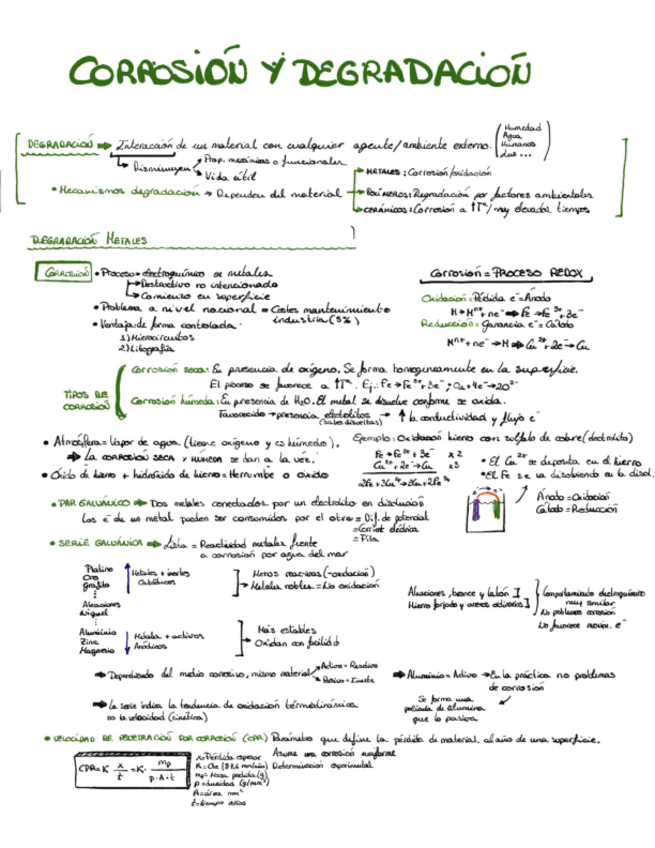 CORROSIÓN Y DEGRADACIÓN
DEGRADACIÓN ➡ Interacción de un material con cualquier agente/ambiente externo. (Humedad
Agua
Humanos
Luz ...)
Disminuyen → Prop. mecánicas o funcionales
→ Vida útil
• Mecanismos degradación → Dependen del material
→ METALES: Corrosión/oxidación
→ POLÍMEROS: Degradación por factores ambientales
→ CERÁMICOS: Corrosión a ↑Tª/muy elevados tiempos
DEGRADACIÓN METALES
CORROSIÓN • Proceso electroquímico en metales
→ Destructivo no intencionado
→ Comienza en superficie
• Problema a nivel nacional = Costes mantenimiento industria (5%)
• Ventaja de forma controlada:
1) Microcircuitos
2) Litografía
Corrosión = PROCESO REDOX
Oxidación = Pérdida e⁻ = Ánodo
M → Mⁿ⁺ + ne⁻ ➡ Fe → Fe³⁺ + 3e⁻
Reducción = Ganancia e⁻ = Cátodo
Mⁿ⁺ + ne⁻ → M ➡ Cu²⁺ + 2e⁻ → Cu
TIPOS DE CORROSIÓN
Corrosión seca: En presencia de oxígeno. Se forma homogéneamente en la superficie.
El proceso se favorece a ↑Tª. Ej.: Fe → Fe³⁺ + 3e⁻; O₂ + 4e⁻ → 2O²⁻
Corrosión húmeda: En presencia de H₂O. El metal se disuelve conforme se oxida.
Favorecido → presencia electrolitos (sales disueltas) → ↑ la conductividad y flujo e⁻
• Atmósfera = Vapor de agua (tiene oxígeno y es húmedo).
➡ La CORROSIÓN SECA Y HÚMEDA se dan a la vez.
• Óxido de hierro + hidróxido de hierro = Herrumbe o óxido
Ejemplo: Oxidación hierro con sulfato de cobre (electrolito)
Fe → Fe³⁺ + 3e⁻ x2
Cu²⁺ + 2e⁻ → Cu x3
2Fe + 3Cu²⁺ → 3Cu + 2Fe³⁺
• El Cu²⁺ se deposita en el hierro
• El Fe se va disolviendo en la disol.
Ánodo = Oxidación
Cátodo = Reducción
• PAR GALVÁNICO ➡ Dos metales conectados por un electrolito en disolución
Los e⁻ de un metal pueden ser consumidos por el otro = Dif. de potencial
= Corrient eléctrica
= Pila
• SERIE GALVÁNICA ➡ Lista = Reactividad metales frente
a corrosión por agua del mar
Platino
Oro
Grafito
Metales + inertes
Catódicos
Aleaciones
Níquel
Aluminio
Zinc
Magnesio
Metales + activos
Anódicos
→ Menos reactivos (- oxidación)
→ Metales nobles = No oxidación
→ Más estables
→ Oxidan con facilidad
Aleaciones, bronce y latón
Hierro forjado y aceros ordinarios
Comportamiento electroquímico
muy similar
No problemas corrosión
No favorece movim. e⁻
➡ Dependiendo del medio corrosivo, mismo material → Activo = Reactivo
→ Pasivo = Inerte
➡ Aluminio = Activo → En la práctica no problemas
de corrosión
Se forma una
película de alúmina
que lo pasiva
➡ La serie indica la tendencia de oxidación termodinámica
no la velocidad (cinética)
• VELOCIDAD DE PENETRACIÓN POR CORROSIÓN (CPR) Parámetro que define la pérdida de material al año de una superficie.
Asume una corrosión uniforme
Determinación experimental
CPR = K · x/t = K · mp/ρ·A·t
x = Pérdida espesor
K = Cte (87.6 mm/año)
mp = Masa perdida (g)
ρ = densidad (g/mm³)
A = área mm²
t = tiempo años